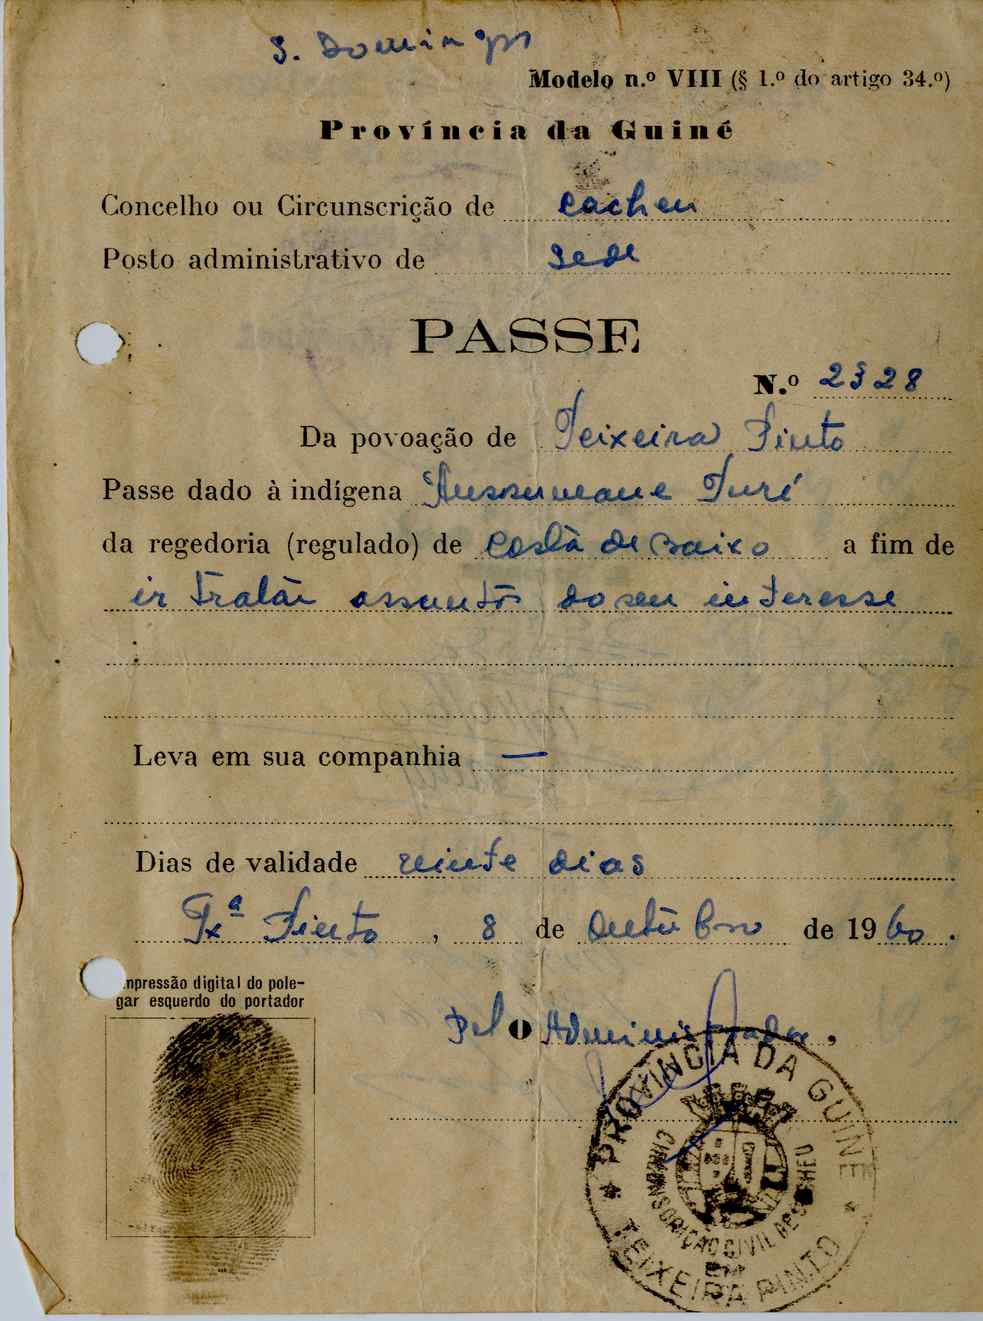 S. Domingos
Modelo n.º VIII (§ 1.º do artigo 34.º)
Província da Guiné
Concelho ou Circunscrição de Cacheu
Posto administrativo de Sede
PASSE
N.º 2328
Da povoação de Teixeira Pinto
Passe dado à indígena Aussumane Turé
da regedoria (regulado) de Costa de Baixo a fim de
ir tratar assuntos do seu interesse
Leva em sua companhia —
Dias de validade vinte dias
Tx.ª Pinto, 8 de Outubro de 1960.
mpressão digital do pole-
gar esquerdo do portador
Pel O Administrador,
PROVÍNCIA DA GUINÉ
CIRCUNSCRIÇÃO CIVIL DE CACHEU
EM
TEIXEIRA PINTO